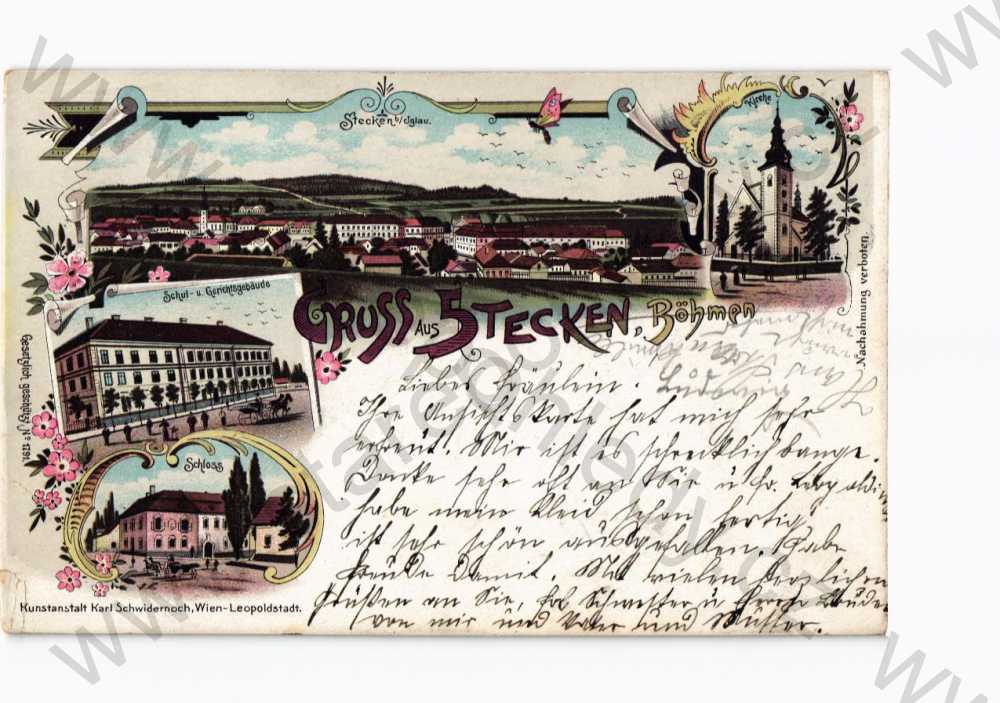 Stecken b/Iglau.
Kirche
Schul- u. Gerichtsgebäude
GRUSS AUS STECKEN, Böhmen
Nachahmung verboten.
Gesetzlich geschützt Nº 1291.
Schloss
Liebes Fräulein.
Ihre Ansichtskarte hat mich sehr
erfreut. Mir ist es schrecklich bange.
Denke sehr oft an Sie u. Fr. Leopoldine
habe mein Kleid schon fertig
ist sehr schön ausgefallen. Habe
Freude damit. Mit vielen herzlichen
Grüßen an Sie, Schwester u.
von mir und Vater und Mutter.
Kunstanstalt Karl Schwidernoch, Wien-Leopoldstadt.